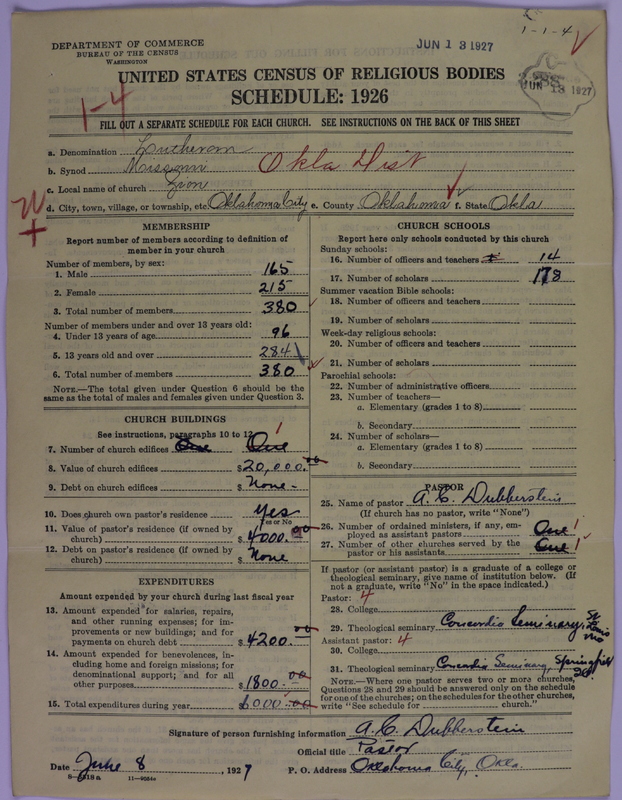 1-1-4
DEPARTMENT OF COMMERCE
BUREAU OF THE CENSUS
WASHINGTON
JUN 13 1927
JUN 13 1927
UNITED STATES CENSUS OF RELIGIOUS BODIES
SCHEDULE: 1926
1-4
FILL OUT A SEPARATE SCHEDULE FOR EACH CHURCH. SEE INSTRUCTIONS ON THE BACK OF THIS SHEET
a. Denomination Lutheran
b. Synod Missouri Okla Dist
c. Local name of church Zion
d. City, town, village, or township, etc. Oklahoma City e. County Oklahoma f. State Okla
MEMBERSHIP
Report number of members according to definition of
member in your church
Number of members, by sex:
1. Male 165
2. Female 215
3. Total number of members 380
Number of members under and over 13 years old:
4. Under 13 years of age 96
5. 13 years old and over 284
6. Total number of members 380
NOTE.—The total given under Question 6 should be the
same as the total of males and females given under Question 3.
CHURCH BUILDINGS
See instructions, paragraphs 10 to 12
7. Number of church edifices One One!
8. Value of church edifices $20,000.00
9. Debt on church edifices $None-
10. Does church own pastor's residence Yes
Yes or No
11. Value of pastor's residence (if owned by
church) $4000.00
12. Debt on pastor's residence (if owned by
church) $None
EXPENDITURES
Amount expended by your church during last fiscal year
13. Amount expended for salaries, repairs,
and other running expenses; for im-
provements or new buildings; and for
payments on church debt $4200.00
14. Amount expended for benevolences, in-
cluding home and foreign missions; for
denominational support; and for all
other purposes $1800.00
15. Total expenditures during year $6000.00
CHURCH SCHOOLS
Report here only schools conducted by this church
Sunday schools:
16. Number of officers and teachers 14
17. Number of scholars 178
Summer vacation Bible schools:
18. Number of officers and teachers
19. Number of scholars
Week-day religious schools:
20. Number of officers and teachers
21. Number of scholars
Parochial schools:
22. Number of administrative officers
23. Number of teachers—
a. Elementary (grades 1 to 8)
b. Secondary
24. Number of scholars—
a. Elementary (grades 1 to 8)
b. Secondary
PASTOR
25. Name of pastor A. C. Dubberstein
(If church has no pastor, write "None")
26. Number of ordained ministers, if any, em-
ployed as assistant pastors One!
27. Number of other churches served by the
pastor or his assistants One!
If pastor (or assistant pastor) is a graduate of a college or
theological seminary, give name of institution below. (If
not a graduate, write "No" in the space indicated.)
Pastor: 4
28. College
29. Theological seminary Concordia Seminary, St. Louis Mo
Assistant pastor: 4
30. College
31. Theological seminary Concordia Seminary, Springfield Ill
NOTE.—Where one pastor serves two or more churches,
Questions 28 and 29 should be answered only on the schedule
for one of the churches; on the schedules for the other churches,
write "See schedule for church."
Signature of person furnishing information A. C. Dubberstein
Official title Pastor
Date June 8, 1927 P. O. Address Oklahoma City, Okla.